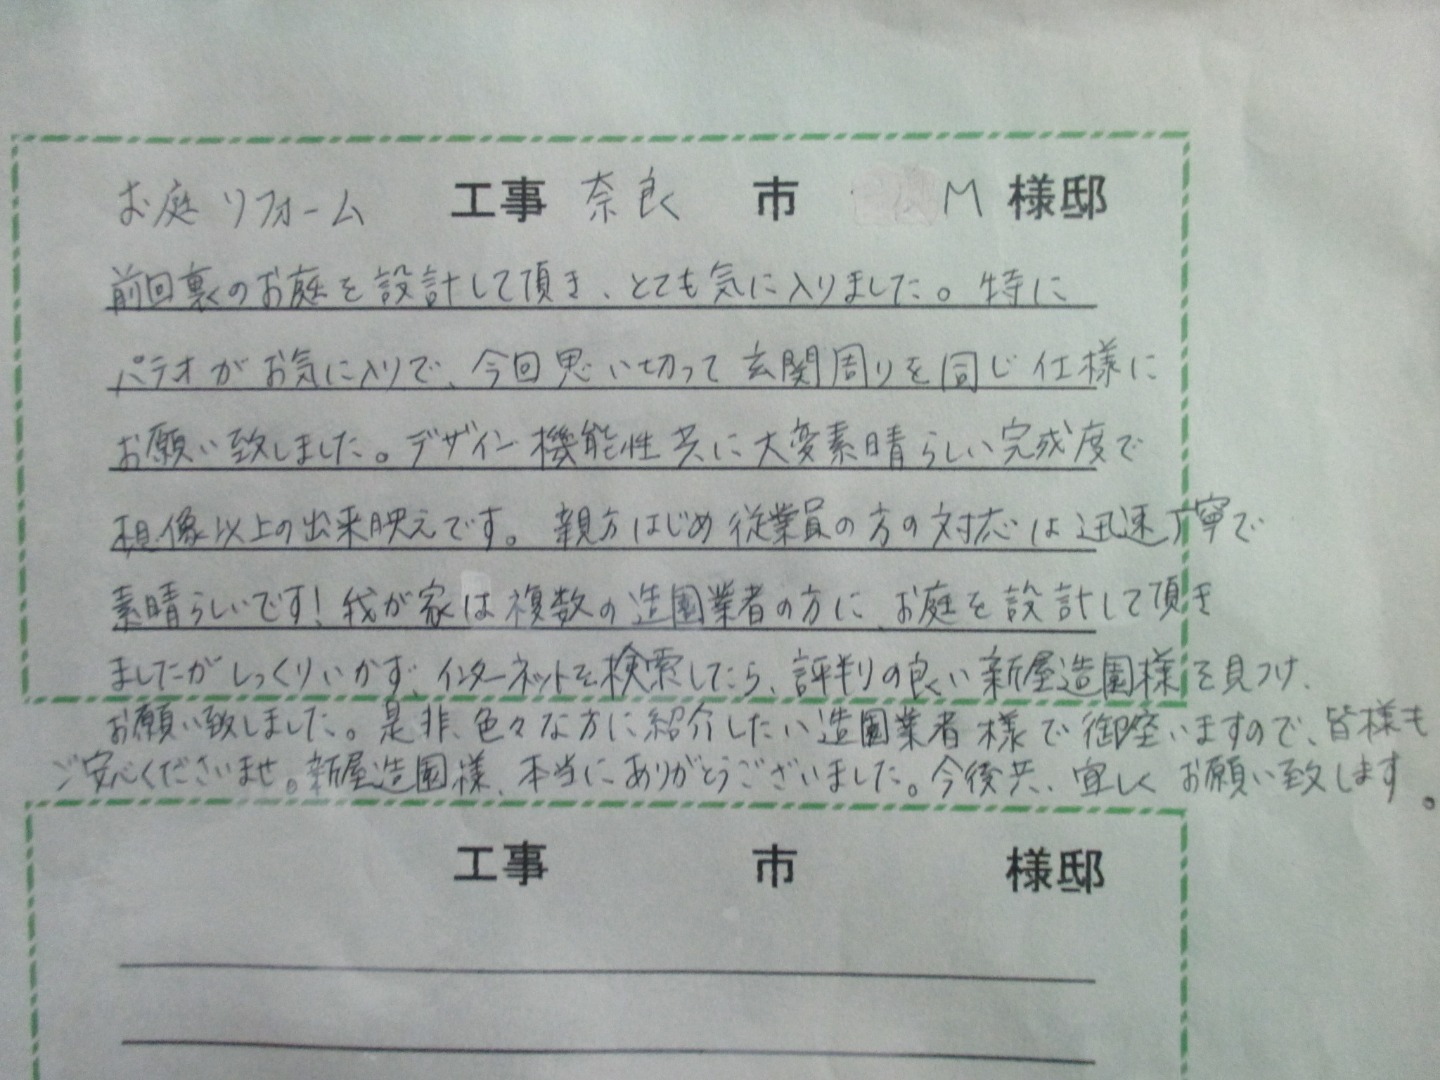 お庭リフォーム 工事 奈良 市 M 様邸
前回裏のお庭を設計して頂き、とても気に入りました。特に
パテオがお気に入りで、今回思い切って玄関周りを同じ仕様に
お願い致しました。デザイン機能性共に大変素晴らしい完成度で
想像以上の出来映えです。親方はじめ従業員の方の対応は迅速丁寧で
素晴らしいです!我が家は複数の造園業者の方に、お庭を設計して頂き
ましたがしっくりいかず、インターネットで検索したら、評判の良い新屋造園様を見つけ、
お願い致しました。是非、色々な方に紹介したい造園業者様で御座いますので、皆様も
ご安心くださいませ。新屋造園様、本当にありがとうございました。今後共、宜しくお願い致します。
工事 市 様邸